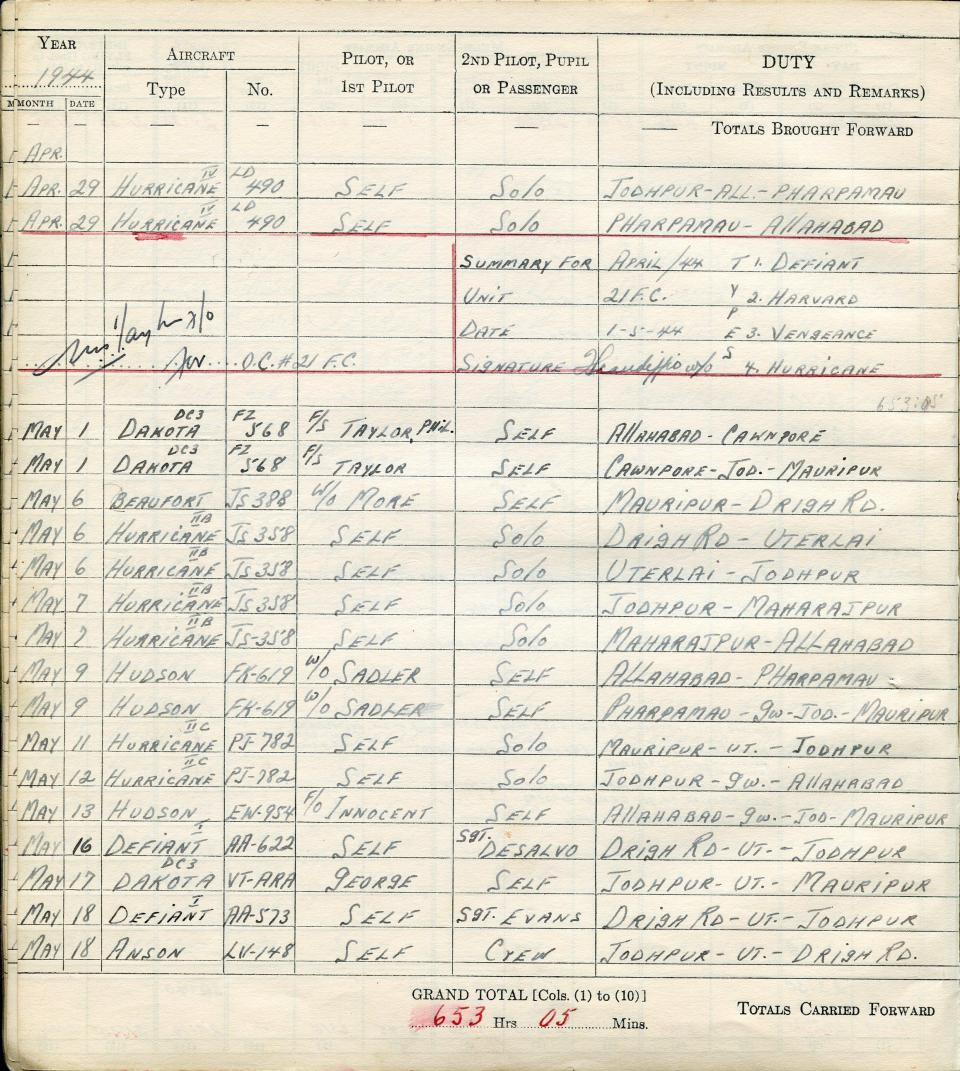 YEAR AIRCRAFT PILOT, OR 2ND PILOT, PUPIL DUTY
1944 Type No. 1ST PILOT OR PASSENGER (INCLUDING RESULTS AND REMARKS)
MONTH DATE
— — — — — — TOTALS BROUGHT FORWARD
APR.
APR. 29 HURRICANE IV LD 490 SELF SOLO JODHPUR-ALL.-PHARPAMAU
APR. 29 HURRICANE IV LD 490 SELF SOLO PHARPAMAU-ALLAHABAD
SUMMARY FOR APRIL/44 T 1. DEFIANT
UNIT 21 F.C. Y 2. HARVARD
P
DATE 1-5-44 E 3. VENGEANCE
for O.C. #21 F.C. SIGNATURE W/O S 4. HURRICANE
653:05
MAY 1 DAKOTA DC3 FZ 568 F/S TAYLOR, PHIL. SELF ALLAHABAD-CAWNPORE
MAY 1 DAKOTA DC3 FZ 568 F/S TAYLOR SELF CAWNPORE-JOD.-MAURIPUR
MAY 6 BEAUFORT JS 388 W/O MORE SELF MAURIPUR-DRIGH RD.
MAY 6 HURRICANE IIB JS 358 SELF SOLO DRIGH RD-UTERLAI
MAY 6 HURRICANE IIB JS 358 SELF SOLO UTERLAI-JODHPUR
MAY 7 HURRICANE IIB JS 358 SELF SOLO JODHPUR-MAHARAJPUR
MAY 7 HURRICANE IIB JS-358 SELF SOLO MAHARAJPUR-ALLAHABAD
MAY 9 HUDSON FK-619 W/O SADLER SELF ALLAHABAD-PHARPAMAU
MAY 9 HUDSON FK-619 W/O SADLER SELF PHARPAMAU-GW-JOD.-MAURIPUR
MAY 11 HURRICANE IIC PJ 782 SELF SOLO MAURIPUR-UT.-JODHPUR
MAY 12 HURRICANE IIC PJ-782 SELF SOLO JODHPUR-GW.-ALLAHABAD
MAY 13 HUDSON EW-954 F/O INNOCENT SELF ALLAHABAD-GW.-JOD-MAURIPUR
MAY 16 DEFIANT I AA-622 SELF SGT. DESALVO DRIGH RD-UT.-JODHPUR
MAY 17 DAKOTA DC3 VT-ARA GEORGE SELF JODHPUR-UT.-MAURIPUR
MAY 18 DEFIANT I AA-573 SELF SGT. EVANS DRIGH RD-UT.-JODHPUR
MAY 18 ANSON LV-148 SELF CREW JODHPUR-UT.-DRIGH RD.
GRAND TOTAL [Cols. (1) to (10)]
653 Hrs 05 Mins. TOTALS CARRIED FORWARD